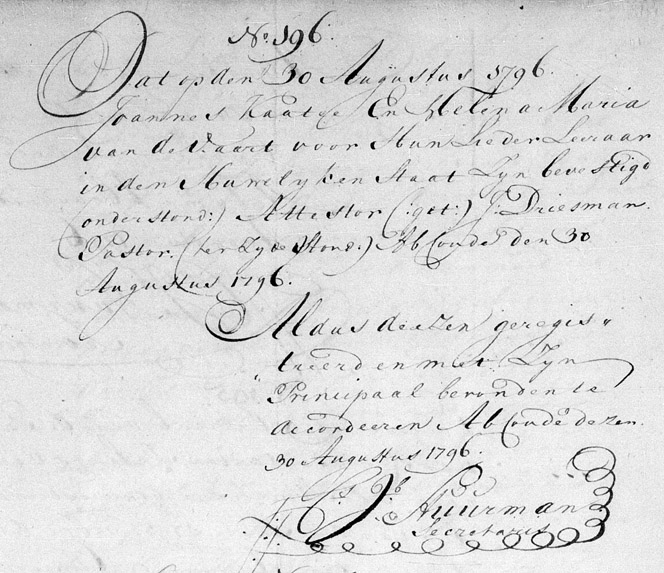 No. 196.
Dat op den 30 Augustus 1796.
Joannes Kaatee En Helena Maria
van de Vaart voor Hun Lieder Leeraar
in den Huwelyken Staat Zyn bevestigd
(onderstond:) Attestor (:get:) J. Driesman.
Pastor. (ter Zyde Stond:) Abcoude den 30
Augustus 1796.
Aldus deezen geregis„
„treerd en met Zyn
Principaal bevonden te
accordeeren Abcoude dezen.
30 Augustus 1796.
Stuurman
Secretaris